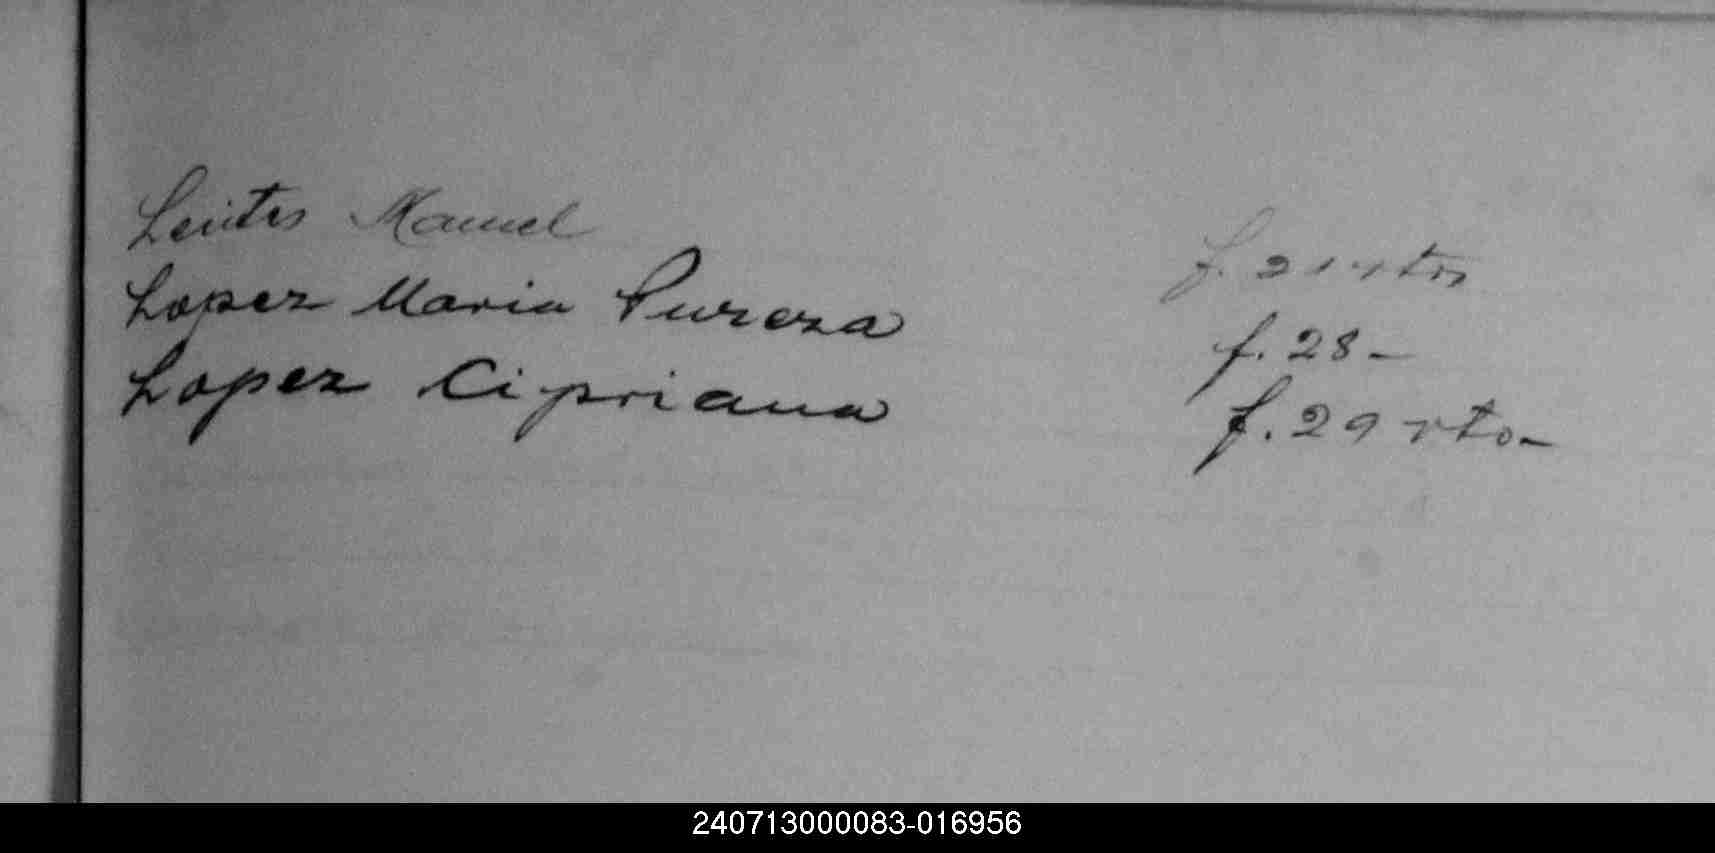 Manuel f. 21 vto
Lopez Maria Pureza f. 28 -
Lopez Cipriana f. 29 vto -
240713000083-016956